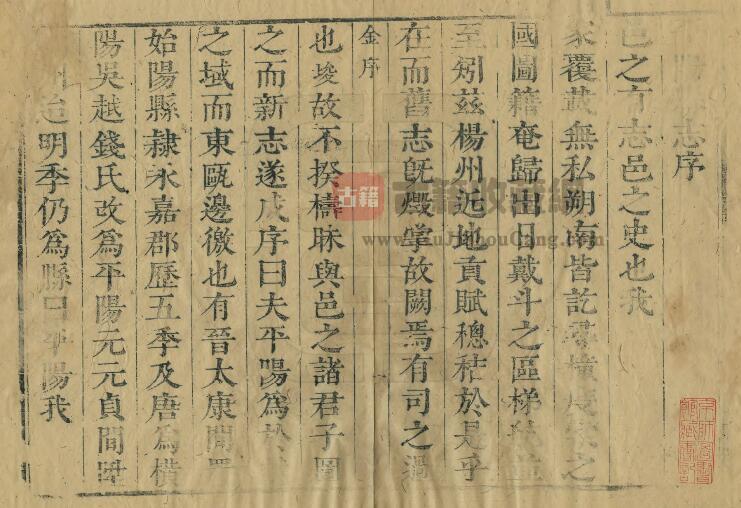 志序
邑之有志邑之史也我
家覆載無私朔南皆訖尋橦度索之
國圖籍奄歸出日戴斗之區梯航並
至矧茲楊州近地貢賦緫秸於是乎
在而舊志旣燬掌故闕焉有司之過
金序
也埈故不揆檮昧與邑之諸君子圖
之而新志遂成序曰夫平陽爲於
之域而東甌邊徼也有晉太康間
始陽縣隸永嘉郡歷五季及唐爲橫
陽吳越錢氏改爲平陽元元貞間陞
州迨明季仍爲縣曰平陽我
古籍
古籍收藏網
www.GuJiShouCang.com